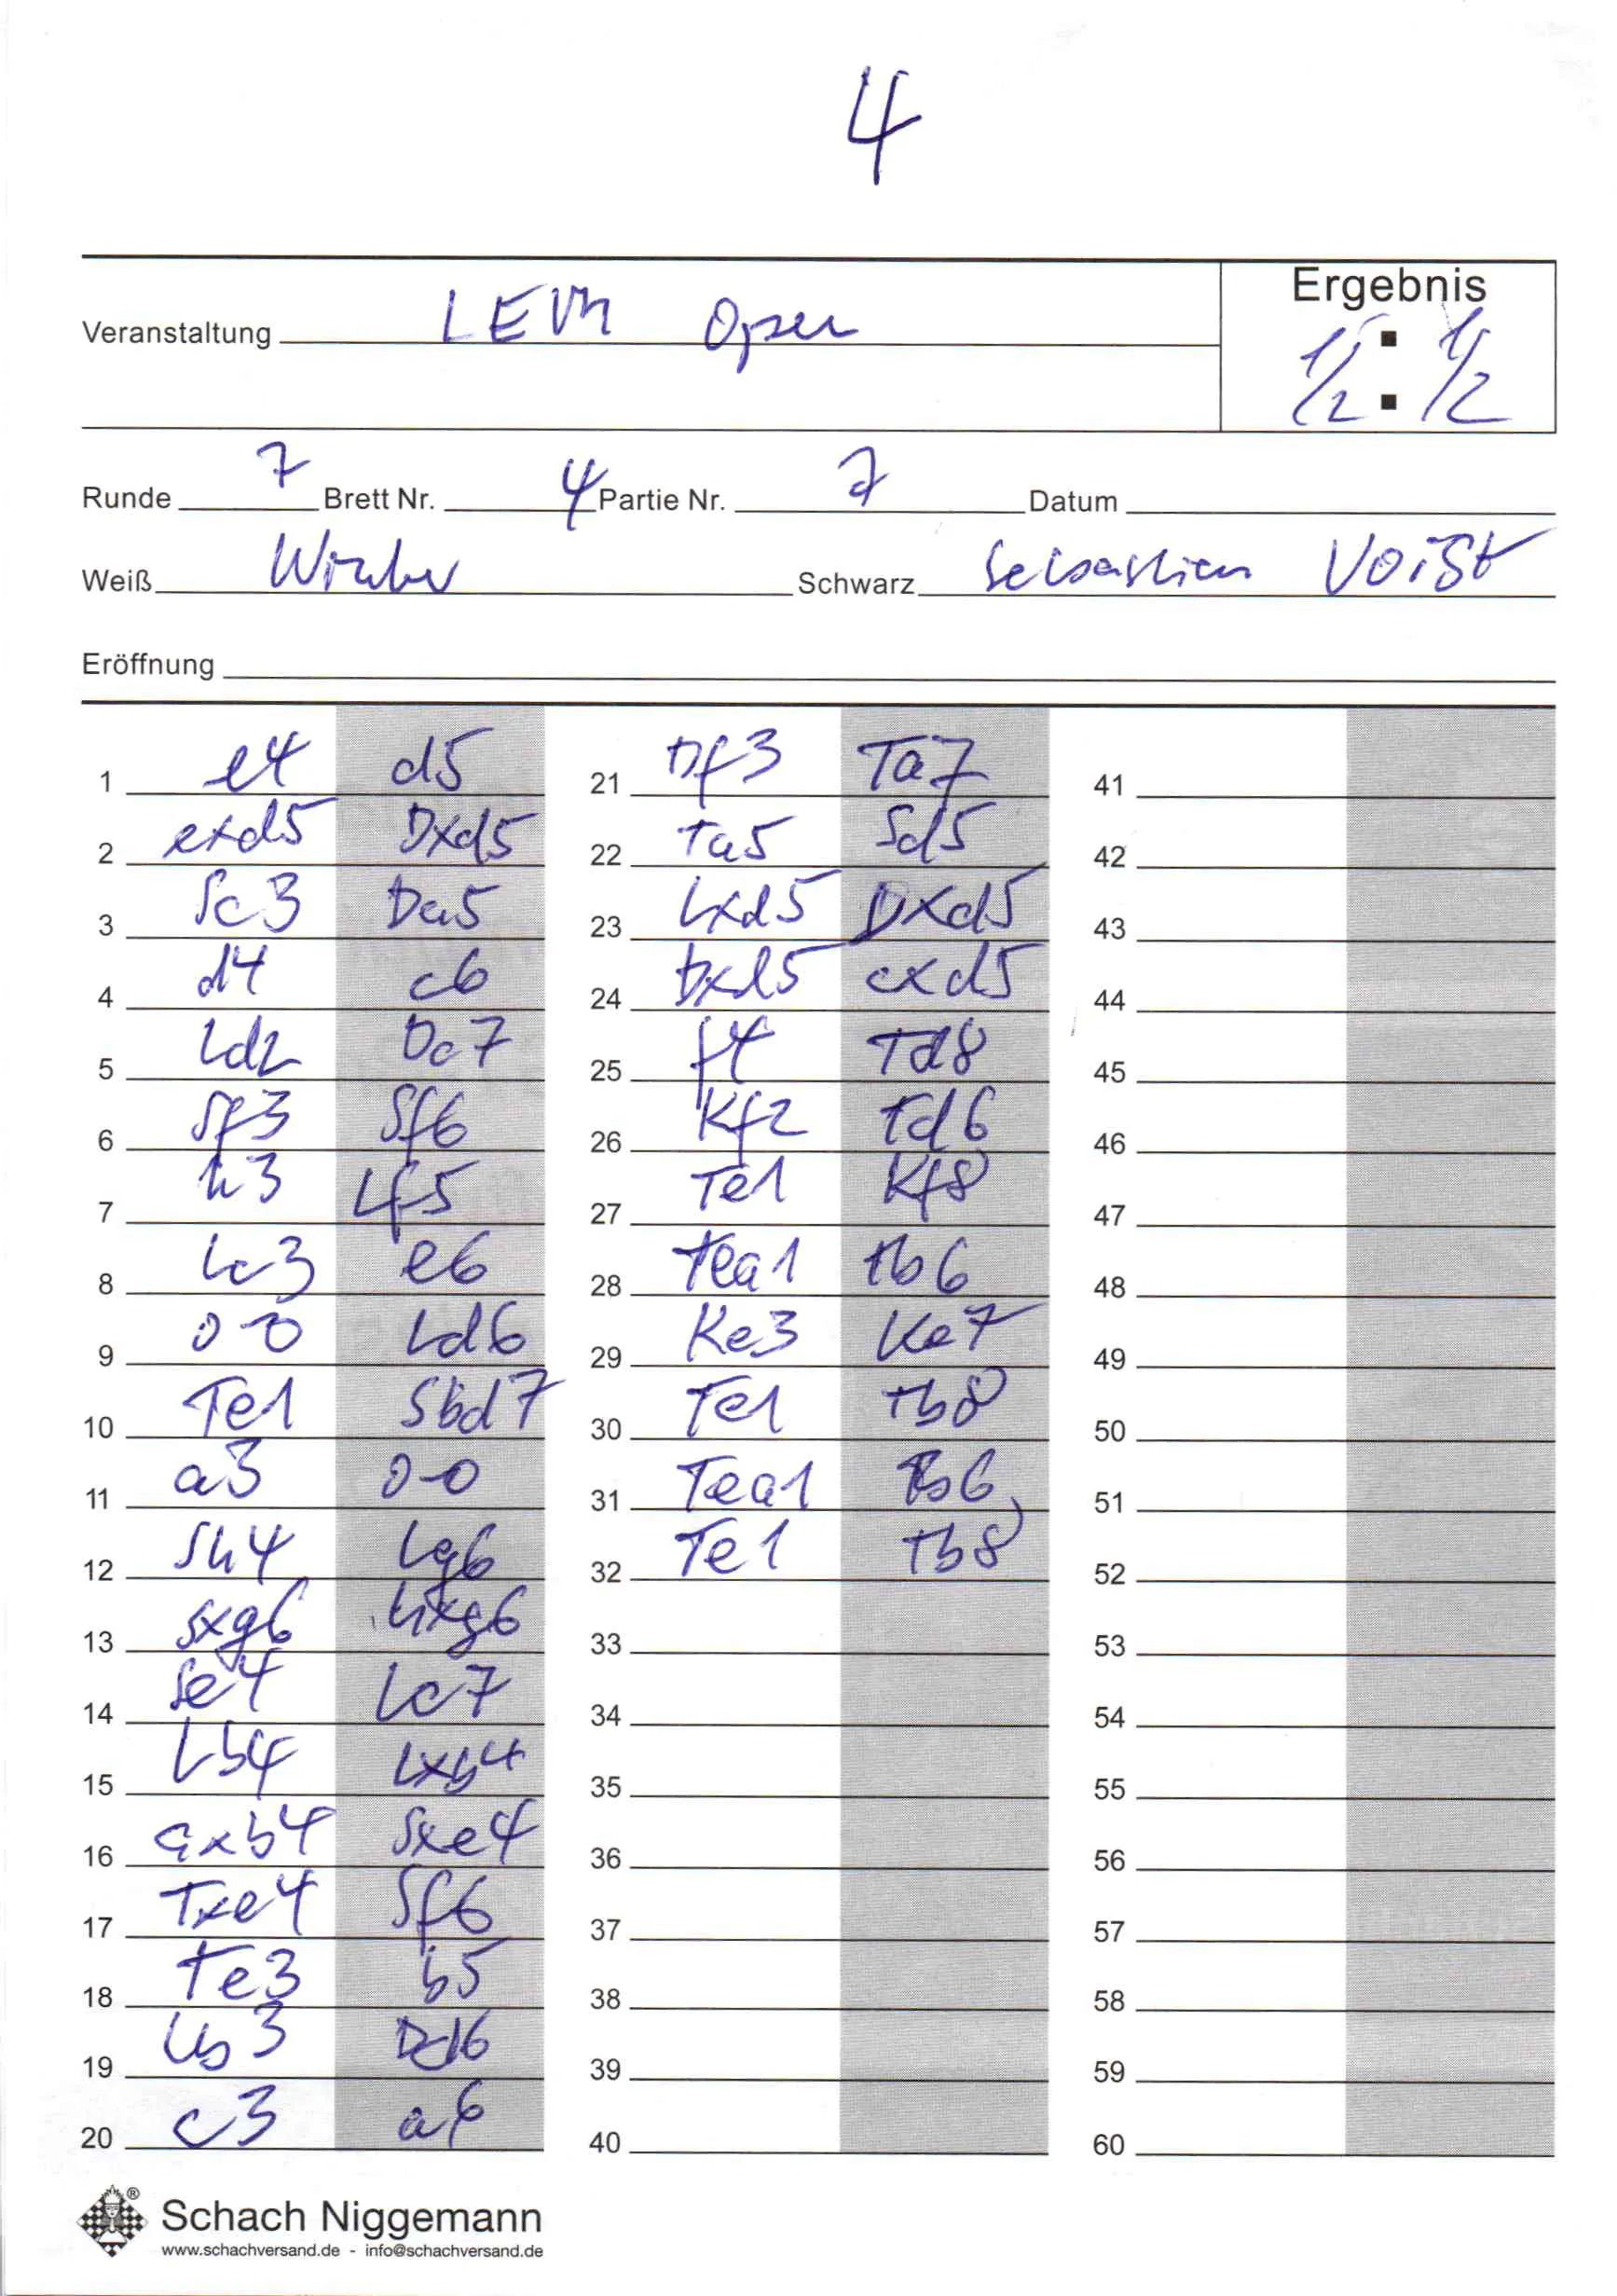 4
Ergebnis
Veranstaltung LEM Open
1/2 : 1/2
Runde 7 Brett Nr. 4 Partie Nr. 7 Datum
Weiß Schwarz Sebastian Voigt
Eröffnung
1 e4 d5
2 exd5 Dxd5
3 Sc3 Da5
4 d4 c6
5 Ld2 Dc7
6 Sf3 Sf6
7 h3 Lf5
8 Lc3 e6
9 0-0 Ld6
10 Te1 Sbd7
11 a3 0-0
12 Sh4 Lg6
13 Sxg6 hxg6
14 Se4 Le7
15 Lb4 Lxb4
16 axb4 Sxe4
17 Txe4 Sf6
18 Te3 b5
19 Lb3 Dd6
20 c3 a6
21 Df3 Ta7
22 Ta5 Sd5
23 Lxd5 Dxd5
24 Dxd5 cxd5
25 f4 Td8
26 Kf2 Td6
27 Te1 Kf8
28 Tea1 Tb6
29 Ke3 Ke7
30 Te1 Tb8
31 Tea1 Tb6
32 Te1 Tb8
33
34
35
36
37
38
39
40
41
42
43
44
45
46
47
48
49
50
51
52
53
54
55
56
57
58
59
60
® Schach Niggemann
www.schachversand.de - info@schachversand.de